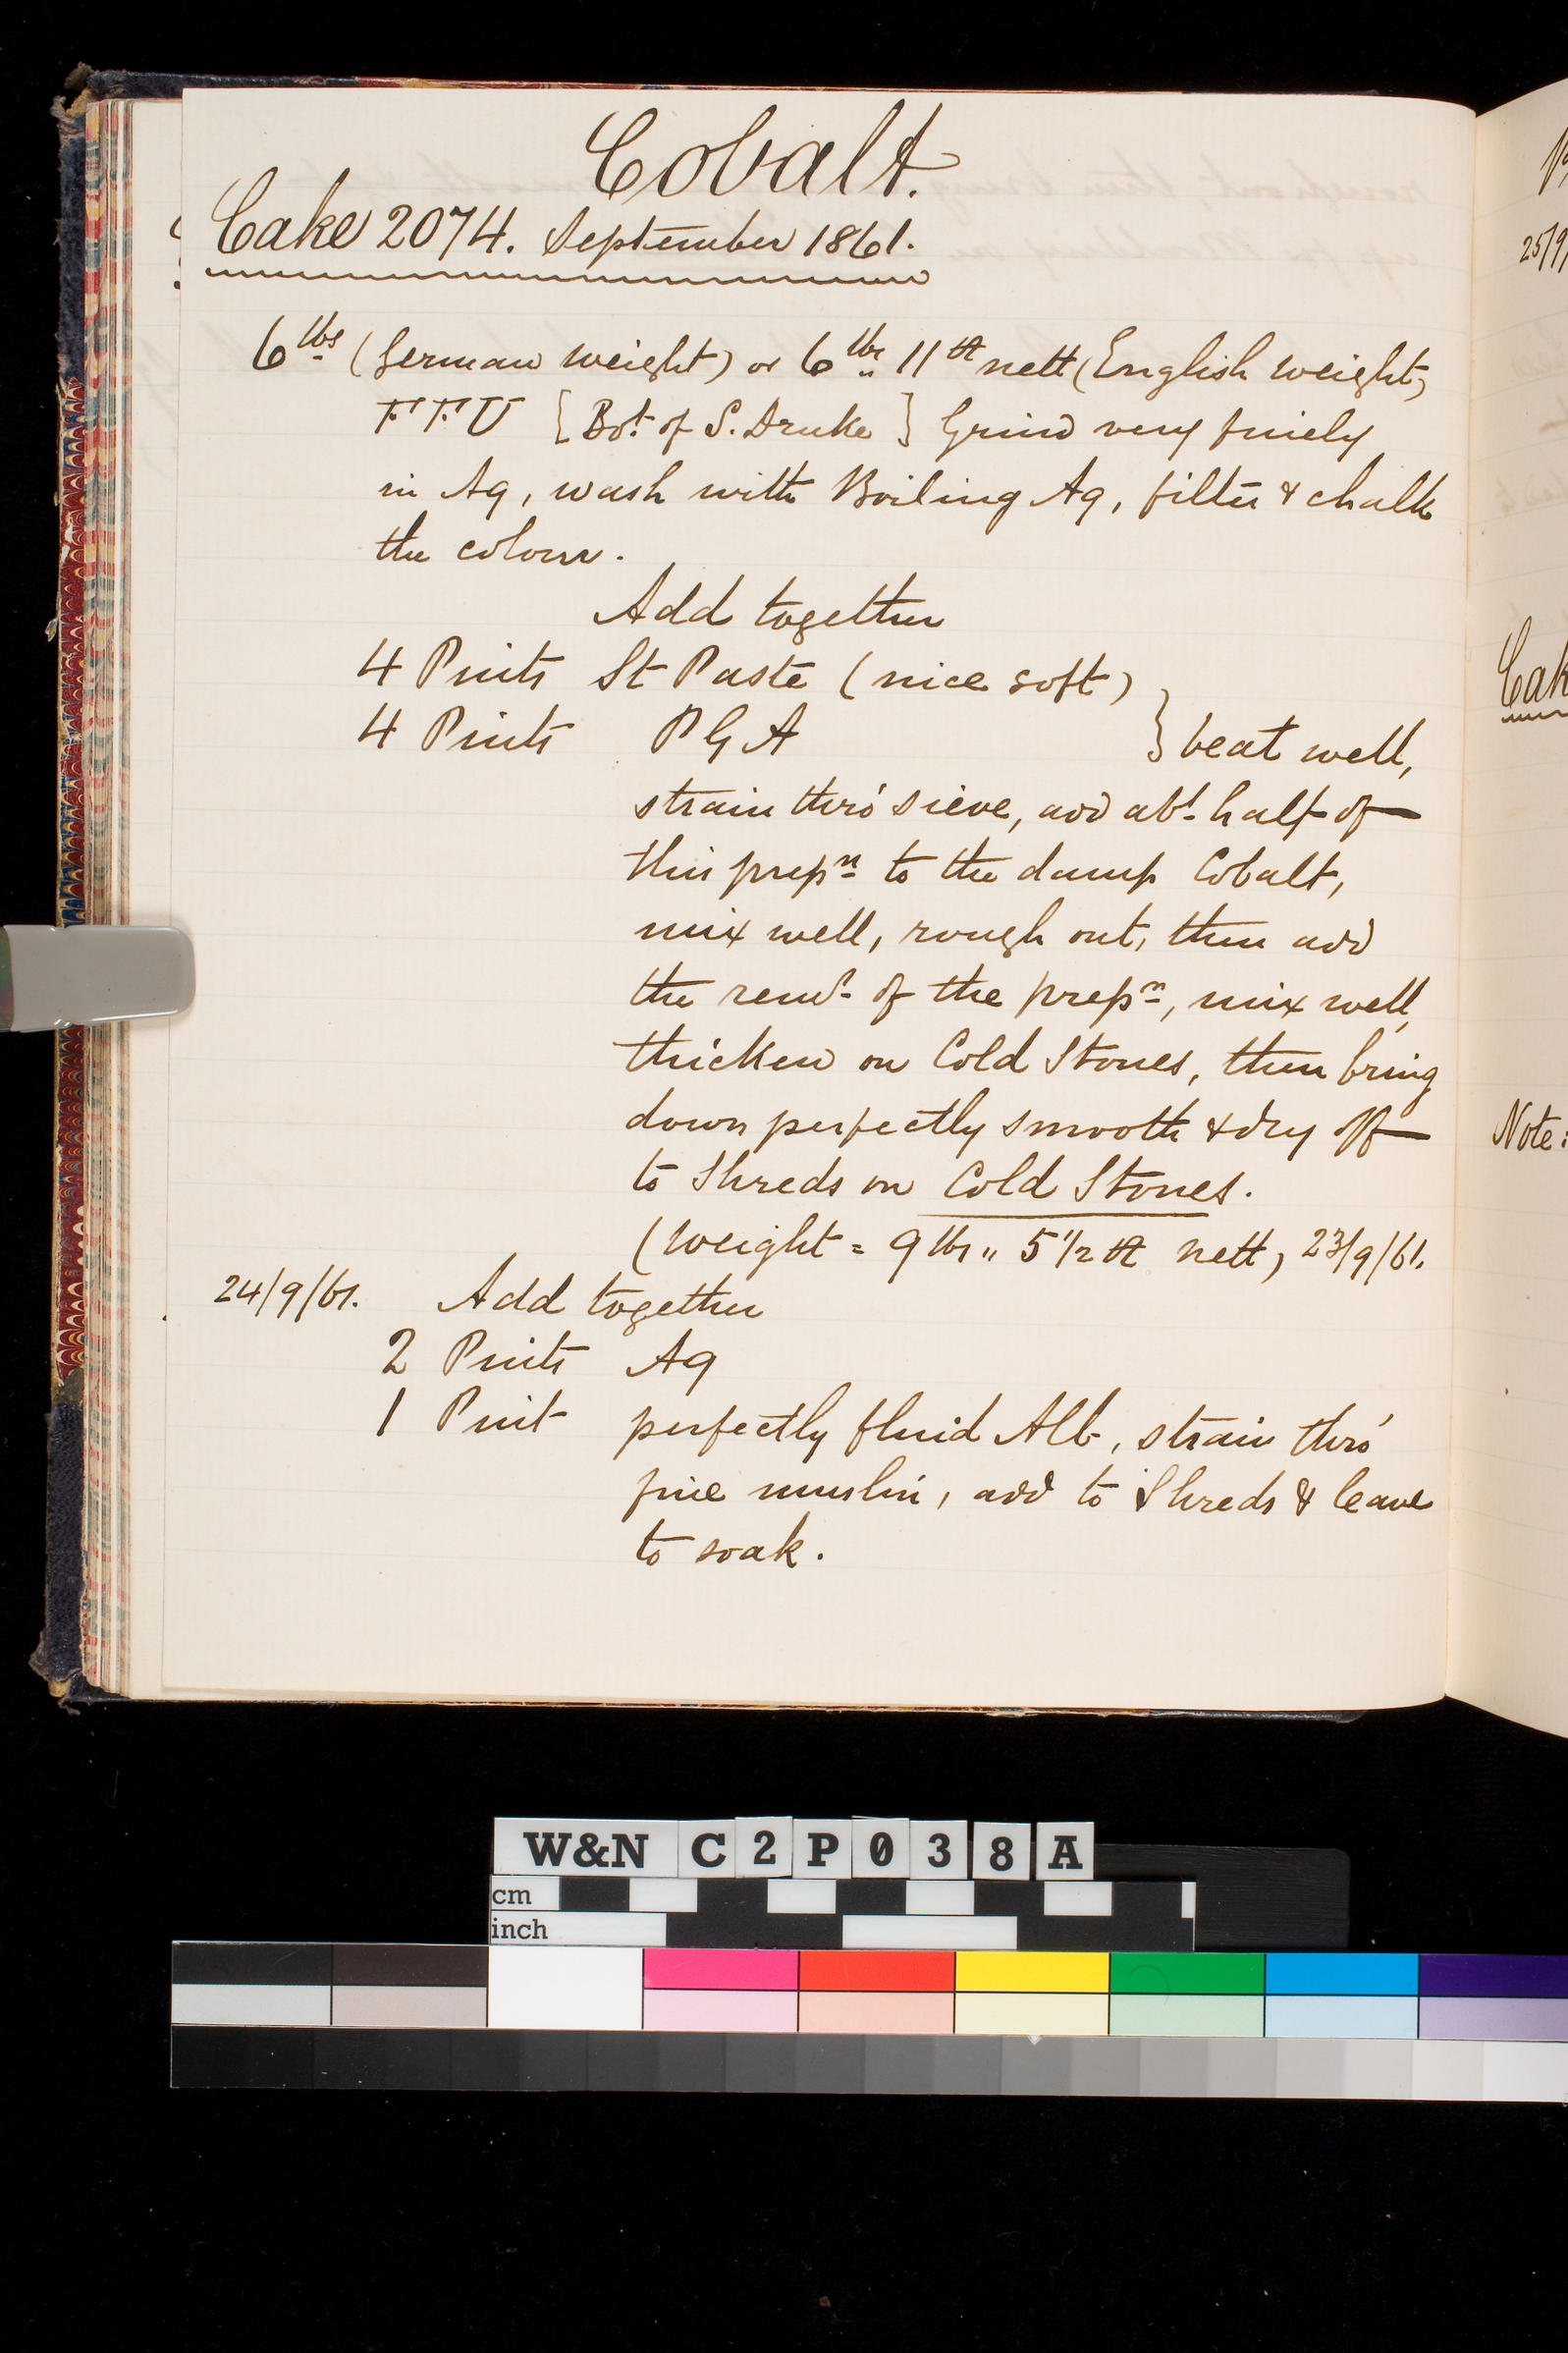 Cobalt.
Cake 2074. September 1861.
6 lbs (German weight) or 6 lbs 11 nett (English weight)
F F U {Bot. of S. Druke} Grind very finely
in Aq, wash with Boiling Aq, filter & chalk
the colour.
Add together
4 Pints St Paste (nice soft)
4 Pints P G A } beat well,
strain thro' sieve, add abt. half of
this prepn to the damp Cobalt,
mix well, rough out, then add
the remr. of the prepn, mix well,
thicken on Cold Stones, then bring
down perfectly smooth & dry off
to Shreds on Cold Stones.
(Weight = 9 lbs " 5 1/2 nett) 23/9/61.
24/9/61. Add together
2 Pints Aq
1 Pint perfectly fluid Alb, strain thro'
fine muslin, add to Shreds & leave
to soak.
25/9/
Cak
Note:
W&N C2P038A
cm
inch